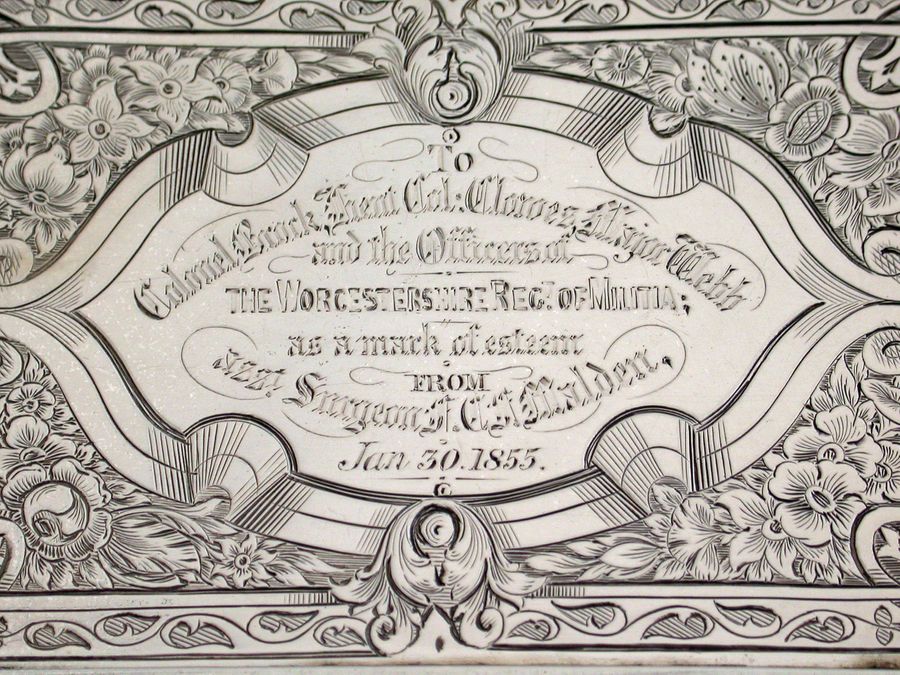 To
Colonel Lieut Col: Clowes, Major Webb
and the Officers of
THE WORCESTERSHIRE REGT. OF MILITIA;
as a mark of esteem
FROM
asst. Surgeon F. C. F. Malden,
Jan 30. 1855.